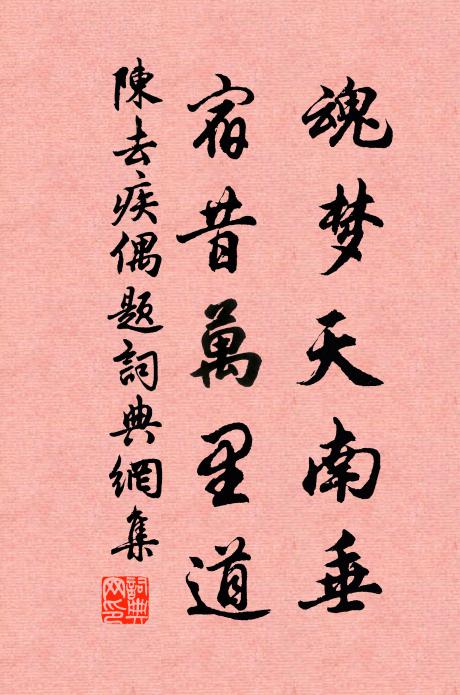 魂梦天南垂
宿昔萬里道
陳去疾偶題詞典網集
詞典
网印